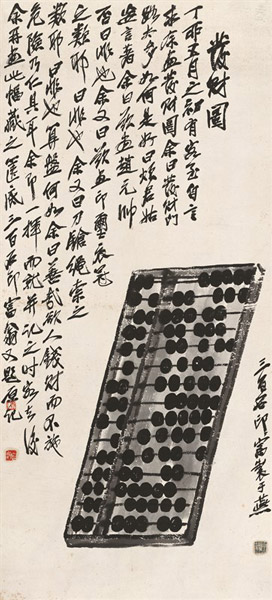 發財圖
丁卯五月之初有客至自言
求余画發財圖余曰發財門
路太多如何是好曰煩君姑
妄言者余曰欲画趙元帥
否曰非也余又曰欲画印璽衣冠
之類耶曰非也余又曰刀槍繩索之
類耶曰非也算盤何如余曰善哉欲人錢財而不施
危險乃仁具耳余即一揮而就并記之時客去後
余再画此幅藏之篋底三百石印富翁又題原記
三百石印富翁製于燕